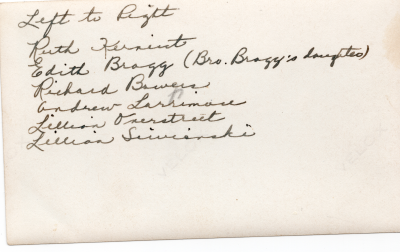 Left to Right
Ruth
Edith Bragg (Bro. Bragg's daughter)
Richard Bowers
Andrew Larrimore
Lillian Overstreet
Lillian Siwienski